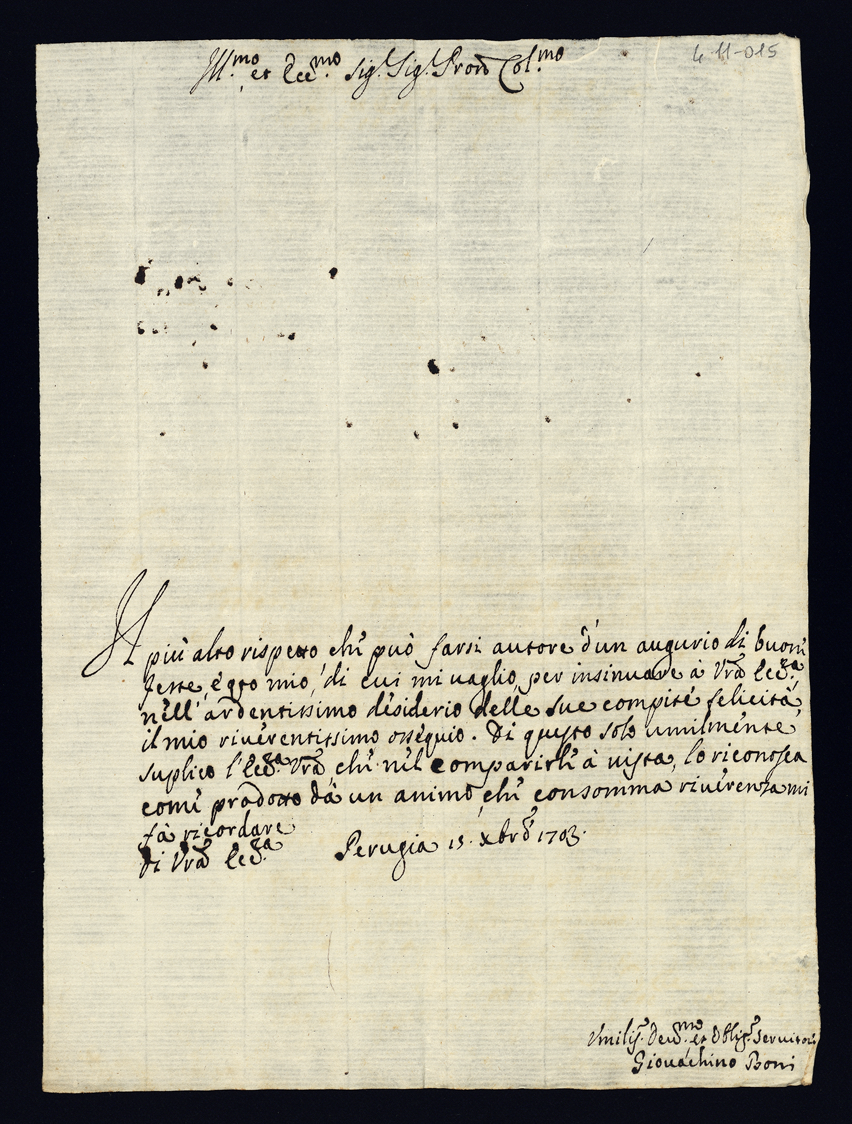 4-11-015
Ill.mo et Ecc.mo Sig.r Sig.r Pron Col.mo
Il più alto rispetto che può farsi autore d'un augurio di buone
feste, è q̃to mio, di cui mi vaglio, per insinuare à Vrã Ecc.za,
nell'ardentissimo desiderio delle sue compite felicità,
il mio riverentissimo ossequio. Di questo solo umilmente
suplico l'Ecc.za Vrã, che nel comparirle à vista, lo riconosca
come prodotto dà un animo, che con somma riverenza mi
fà ricordare
Di Vrã Ecc.za Perugia 15. Xbre 1703.
Vmiliss.o Dev.mo et Oblig.o Servitore
Giovachino Boni